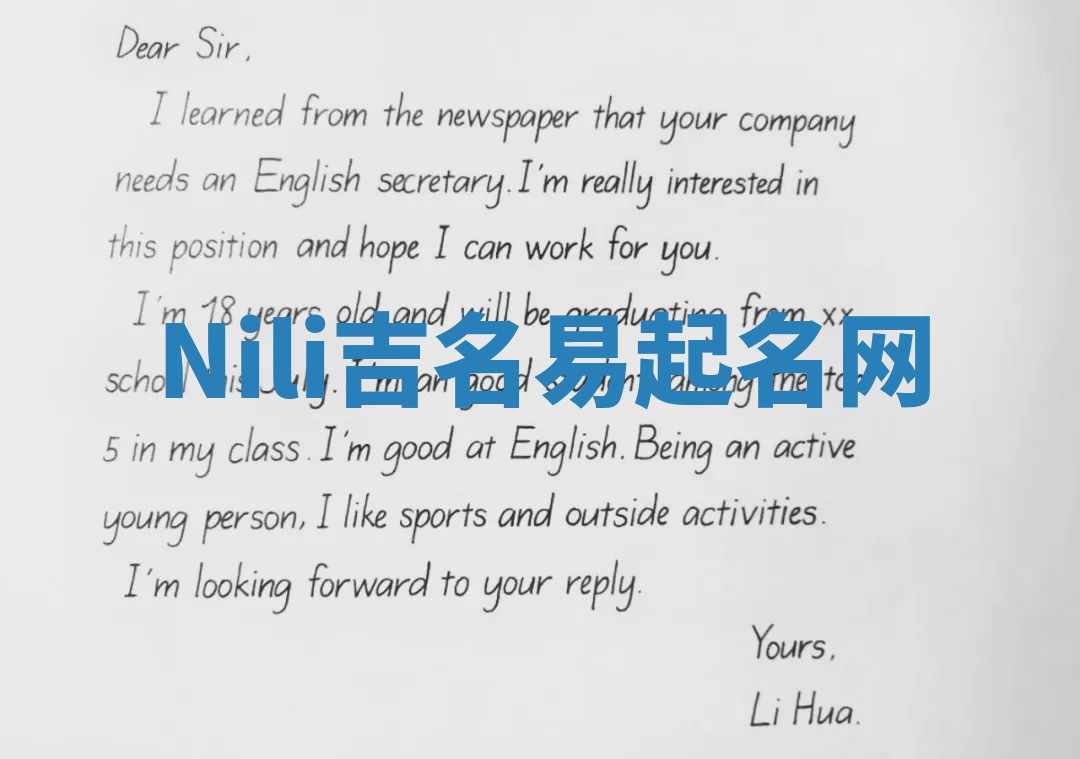 Dear Sir,
I learned from the newspaper that your company
needs an English secretary. I'm really interested in
this position and hope I can work for you.
I'm 18 years old and will be graduating from xx
Nili吉名易起名网
school this July. I'm an good student among the top
5 in my class. I'm good at English. Being an active
young person, I like sports and outside activities.
I'm looking forward to your reply.
Yours,
Li Hua.